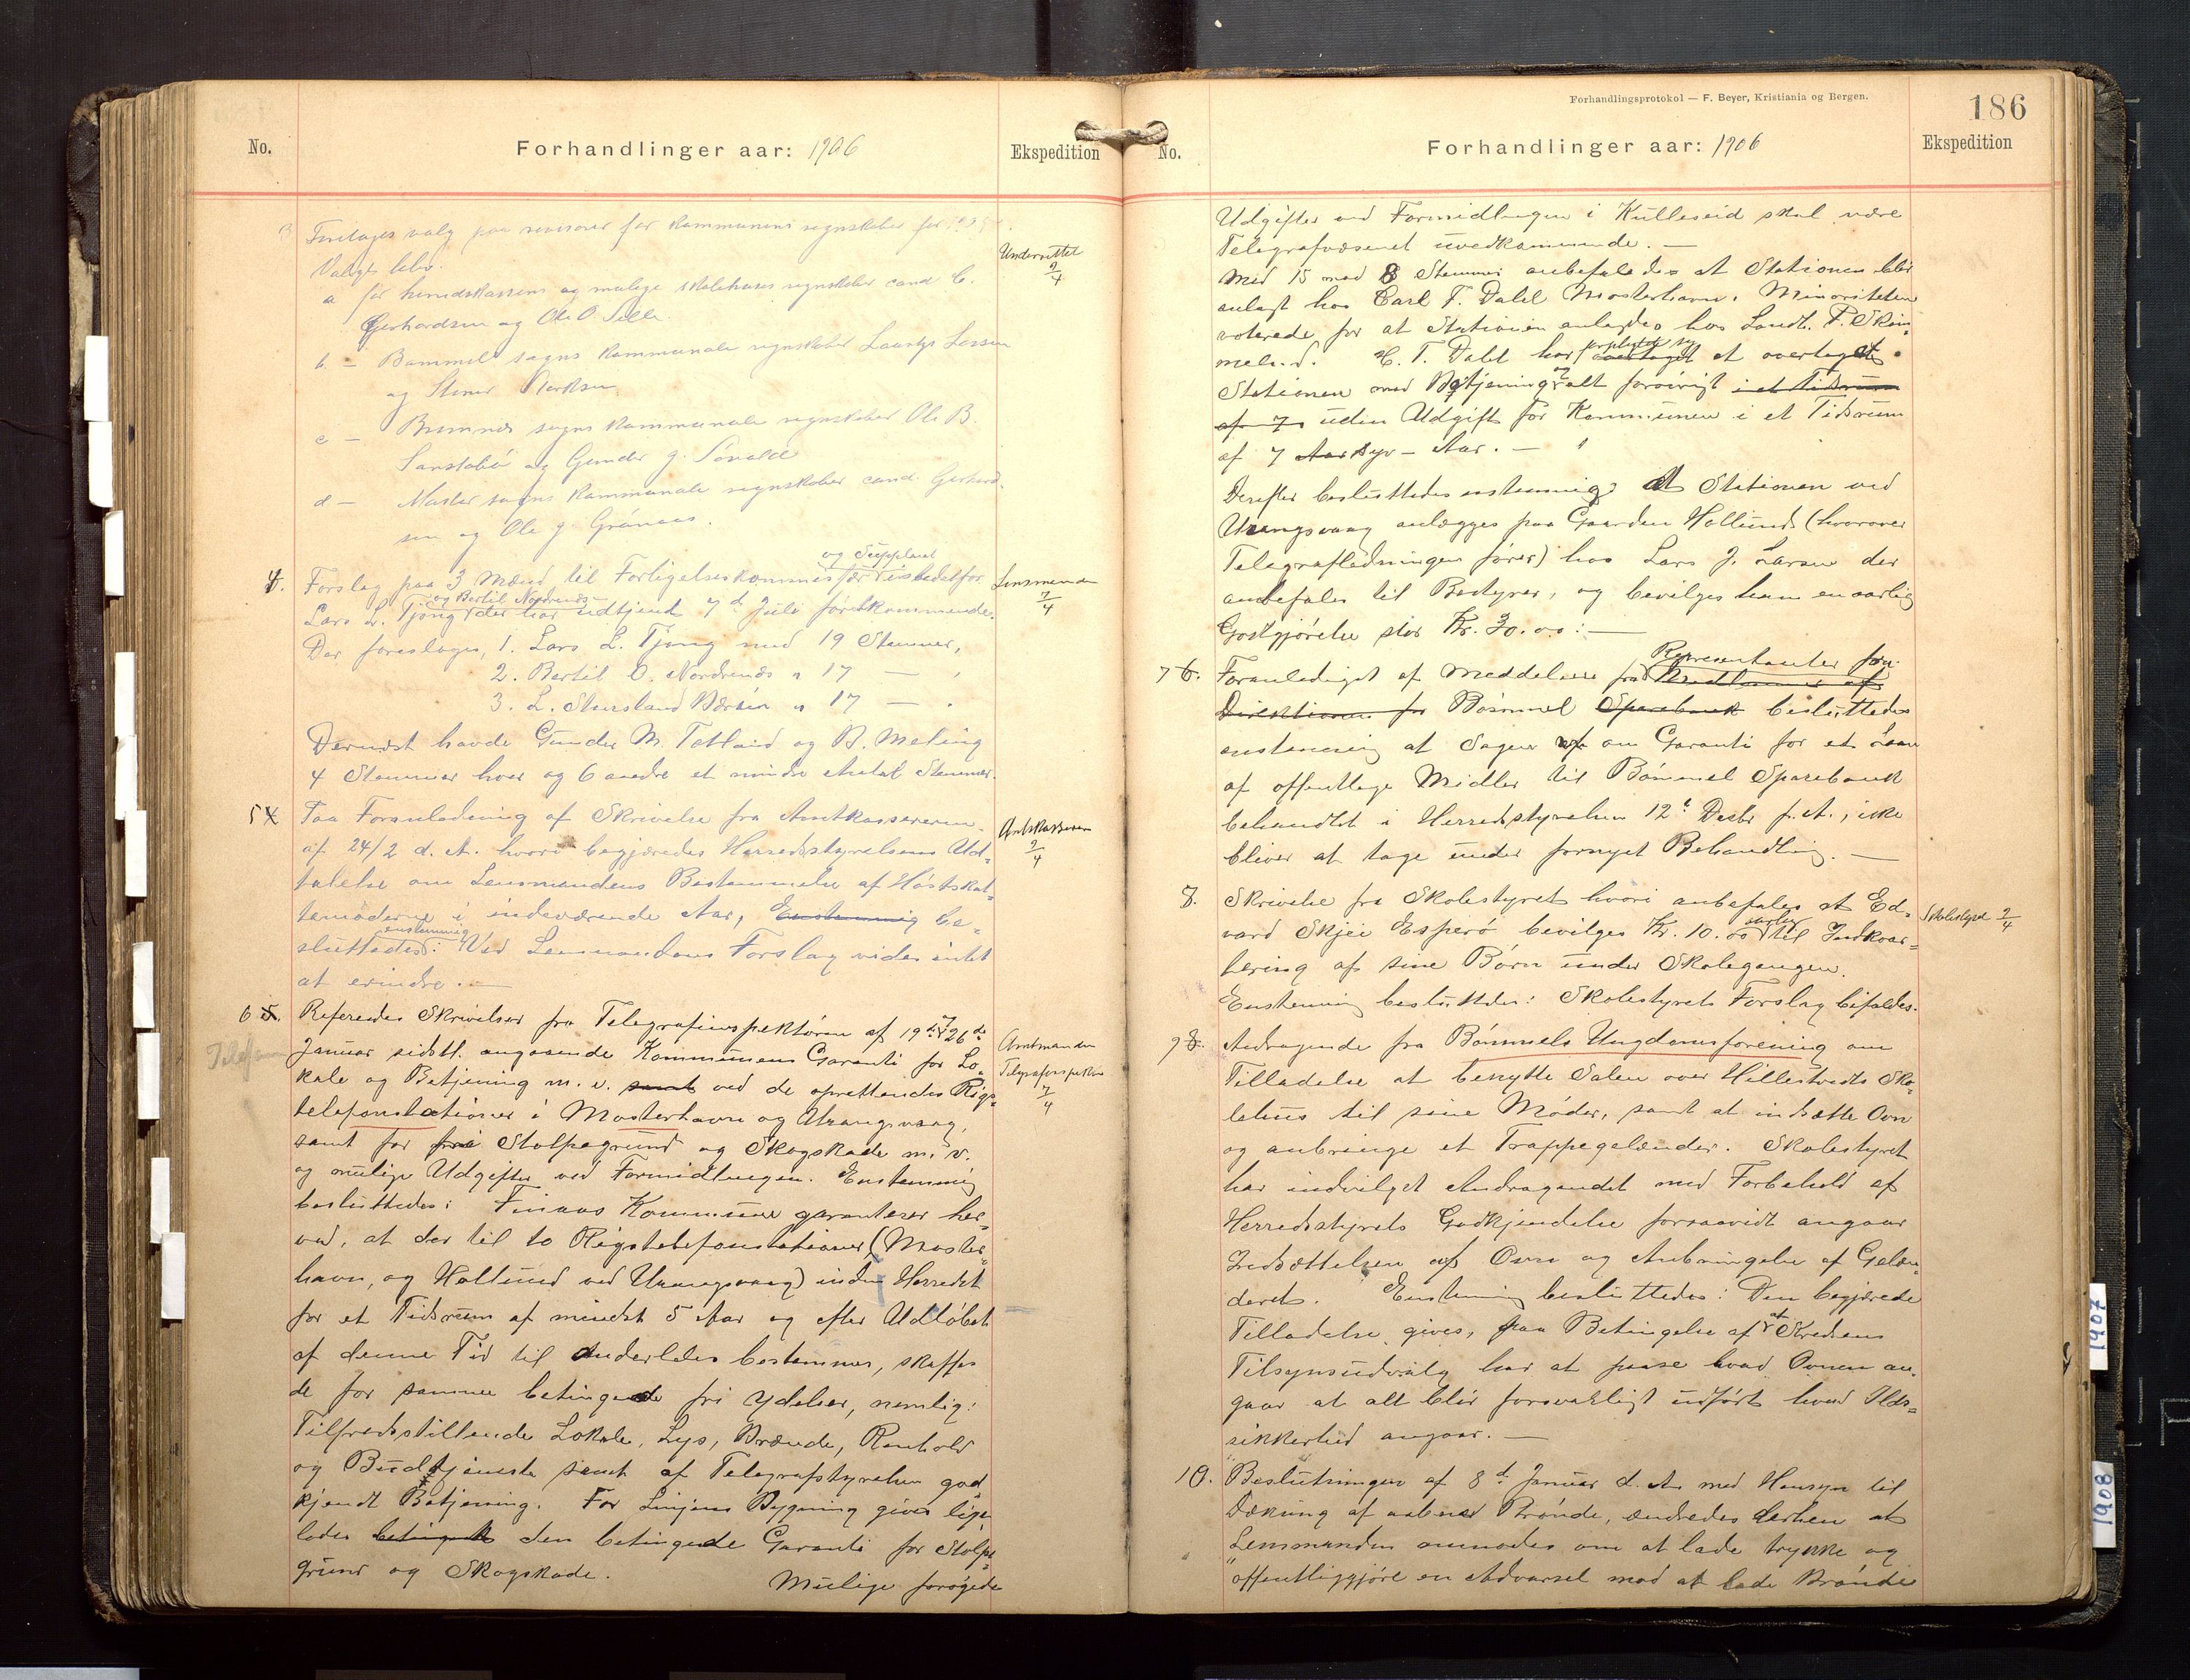 No.
Forhandlinger aar: 1906
Ekspedition
3 Foretages valg paa revisorer for kommunens regnskaber for
Valgt blev.
a for herredskassens og mulige skolekasses regnskaber cand C.
Gerhardsen og Ole O.
b – Bømmel sogns kommunale regnskaber Laurits Larsen
og Stener
c – Bremnes sogns kommunale regnskaber Ole B.
og Gunder J.
d – Moster sogns kommunale regnskaber cand. Gerhard-
sen og Ole J. Grønaas.
og Suppleant
4. Forslag paa 3 Mænd til Forligelseskommissær istedetfor
og Bertil Nordrenæs
Lars L. Tjong der har udtjent 7d Juli førstkommende.
Der foreslages, 1. Lars L. Tjong med 19 Stemmer,
2. Bertil O. Nordrenæs " 17 — "
3. L. Stursland " 17 — "
Dernæst havde Gunder M. og B. Meling
4 Stemmer hver og 6 andre et mindre Antal Stemmer.
5 4 Paa Foranledning af Skrivelse fra Amtkassereren
af 24/2 d. A. hvori begjæredes Herredsstyrelsens Ud-
talelse om Lensmandens Bestemmelse af Høstskat-
temøderne i indeværende Aar, Enstemmig be-
enstemmig
sluttedes: Ved Lensmandens Forslag vides intet
at erindre. —
6 5. Refereredes Skrivelser fra Telegrafinspektøren af 19de & 26de
Telefon
Januar sidstl. angaaende Kommunens Garanti for Lo-
kale og Betjening m. v. samt ved de oprettendes Rigs-
telefonstationer i Mosterhavn og Urangsvaag,
samt for fri Stolpegrund og Skogskade m. v.
og mulige Udgifter ved Formidlingen. Enstemmig
besluttedes: Finaas Kommune garanterer her-
ved, at der til to Rigstelefonstationer (Moster-
havn, og Hollund ved Urangsvaag) inden Herredet
for et Tidsrum af mindst 5 Aar og efter Udløbet
af denne Tid til Anderledes bestemmes, skaffes
de for samme betingede fri Ydelser, nemlig:
Tilfredsstillende Lokale, Lys, Brænde, Renhold
og Budtjeneste samt af Telegrafstyrelsen god-
kjendt Betjening. For Linjens Bygning gives lige-
ledes betingede den betingede Garanti for Stolpe-
grund og Skogskade.
Mulige forøgede
Underrettet
2/4
Lensmanden
7/4
Amtskasseren
2/4
Amtmanden
Telegrafinspektør
7/4
Forhandlingsprotokol — F. Beyer, Kristiania og Bergen.
186
No.
Forhandlinger aar: 1906
Ekspedition
Udgifter ved Formidlingen i Kulleseid skal være
Telegrafvæsenet uvedkommende. —
Med 15 mod 8 Stemmer anbefaledes at Stationen blir
anlagt hos Carl T. Dahl Mosterhavn. Minoriteten
voterede for at Stationen anlagdes hos Landh. P. Skim-
meland. C. T. Dahl har forpligtet sig overtaget at overtage
Stationen med Betjening og alt forøvrigt i et Tidsrum
af 7 uden Udgift for Kommunen i et Tidsrum
af 7 Aar syv – Aar. —
Derefter besluttedes enstemmig: At Stationen ved
Urangsvaag anlægges paa Gaarden Hollund (hvorover
Telegrafledningen fører) hos Lars J. Larsen der
anbefales til Bestyrer, og bevilges ham en aarlig
Godtgjørelse stor Kr. 30.00: —
Representanter fra
7 6. Foranlediget af Meddelelse fra Medlemmer af
Direktionen for Bømmel Sparebank besluttedes
enstemmig at Sagen af om Garanti for et Laan
af offentlige Midler til Bømmel Sparebank
behandlet i Herredsstyrelsen 12te Decbr f. A., ikke
bliver at tage under fornyet Behandling. —
8. Skrivelse fra Skolestyret hvori anbefales at Ed-
vard Skjei Esperø bevilges Kr. 10.00 aarlig til Indkvar-
tering af sine Børn under Skolegangen.
Enstemmig besluttedes: Skolestyrets Forslag bifaldes.
Skolestyret 2/4
9 8. Andragende fra Bømmels Ungdomsforening om
Tilladelse at benytte Salen over Hillestvedts Sko-
lehus til sine Møder, samt at indsætte Ovn
og anbringe et Trappegelænder. Skolestyret
har indvilget Andragendet med Forbehold af
Herredsstyrets Godkjendelse forsaavidt angaar
Indsættelsen af Ovn og Anbringelse af Gelæn-
deret. Enstemmig besluttedes: Den begjærede
Tilladelse gives, paa Betingelse af at Kredsens
Tilsynsudvalg har at paase hvad Ovnen an-
gaar at alt blir forsvarligt udført hvad Ilds-
sikkerhed angaar. —
10. Beslutningen af 8d Januar d. A. med Hensyn til
Dækning af aabne Brønde, ændredes derhen at
Lensmanden anmodes om at lade trykke og
offentliggjøre en Advarsel mod at lade Brønde
1907
1908